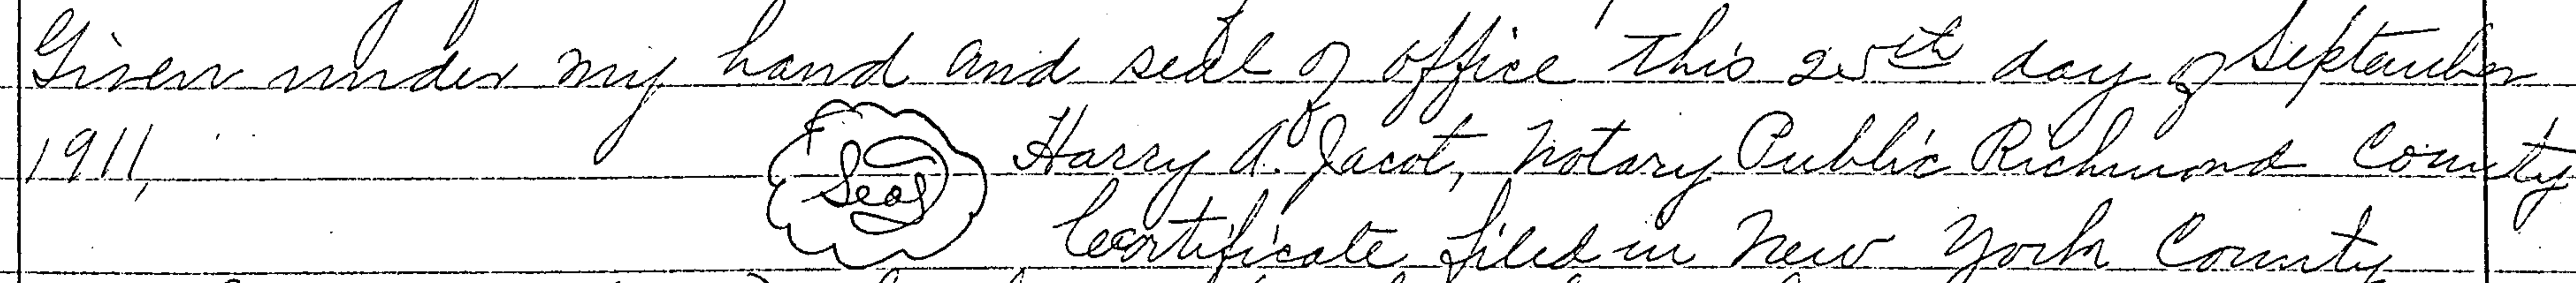 Given under my hand and seal of office this 25th day of September
1911, Seal Harry A. Jacot, Notary Public Richmond County
Certificate filed in New York County